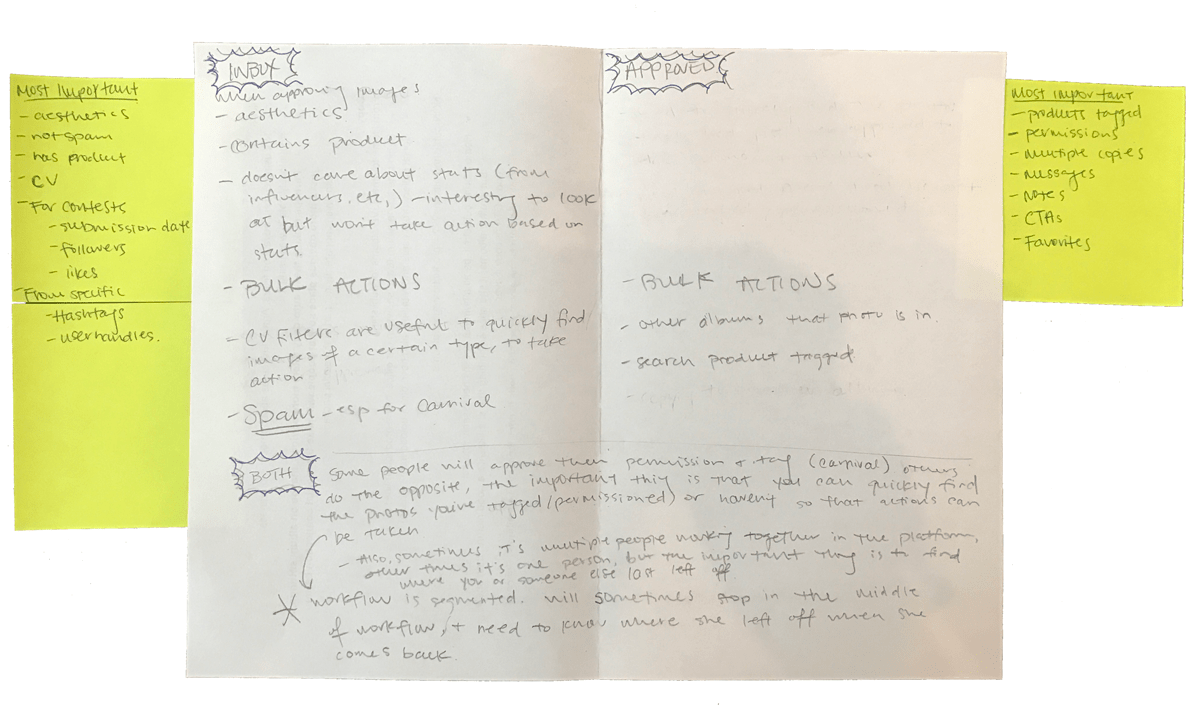 Most Important
- aesthetics
- not spam
- has product
- CV
- For contests
- submission date
- followers
- likes
- From specific
- Hashtags
- userhandles.
INBOX
when approving images
- aesthetics
- contains product
- doesn't care about stats (from
influencers, etc,) - interesting to look
at but won't take action based on
stats.
- BULK ACTIONS
- CV Filters are useful to quickly find
images of a certain type, to take
action
- Spam - esp for Carnival
APPROVED
- BULK ACTIONS
- other albums that photo is in.
- search product tagged.
Most important
- products tagged
- permissions
- multiple copies
- messages
- Notes
- CTAs
- Favorites
BOTH
Some people will approve then permission & tag (carnival) others
do the opposite, the important thing is that you can quickly find
the photos you've tagged/permissioned) or haven't so that actions can
be taken
- Also, sometimes it's multiple people working together in the platform,
other times it's one person, but the important thing is to find
where you or someone else last left off.
* workflow is segmented. will sometimes stop in the middle
of workflow, + need to know where she left off when she
comes back.